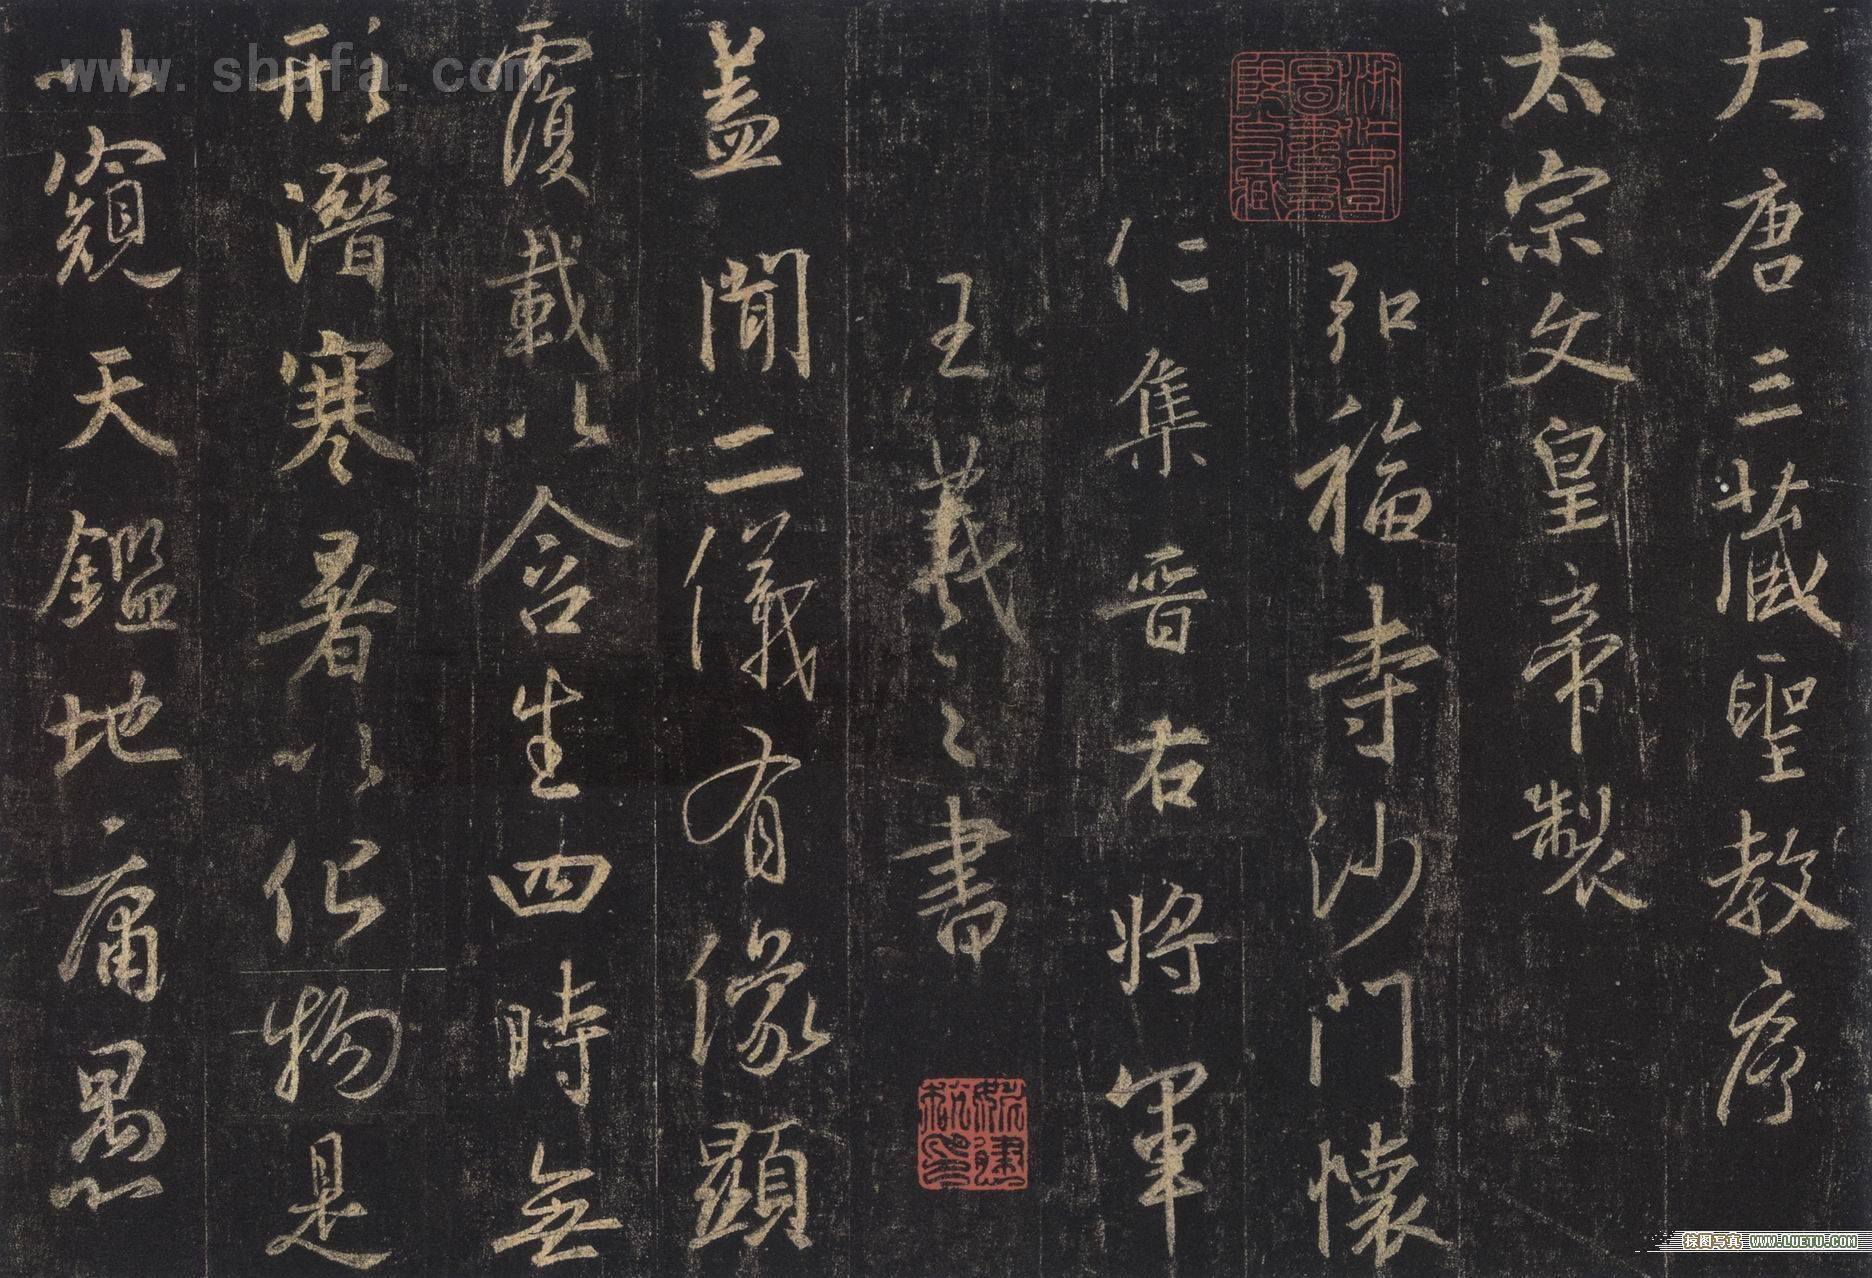 大唐三藏聖教序
太宗文皇帝製
弘福寺沙門懷
仁集晉右將軍
王羲之書
蓋聞二儀有像顯
覆載以含生四時無
形潛寒暑以化物是
以窺天鑑地庸愚
www.shufa.com
按图写真 www.LUETU.COM